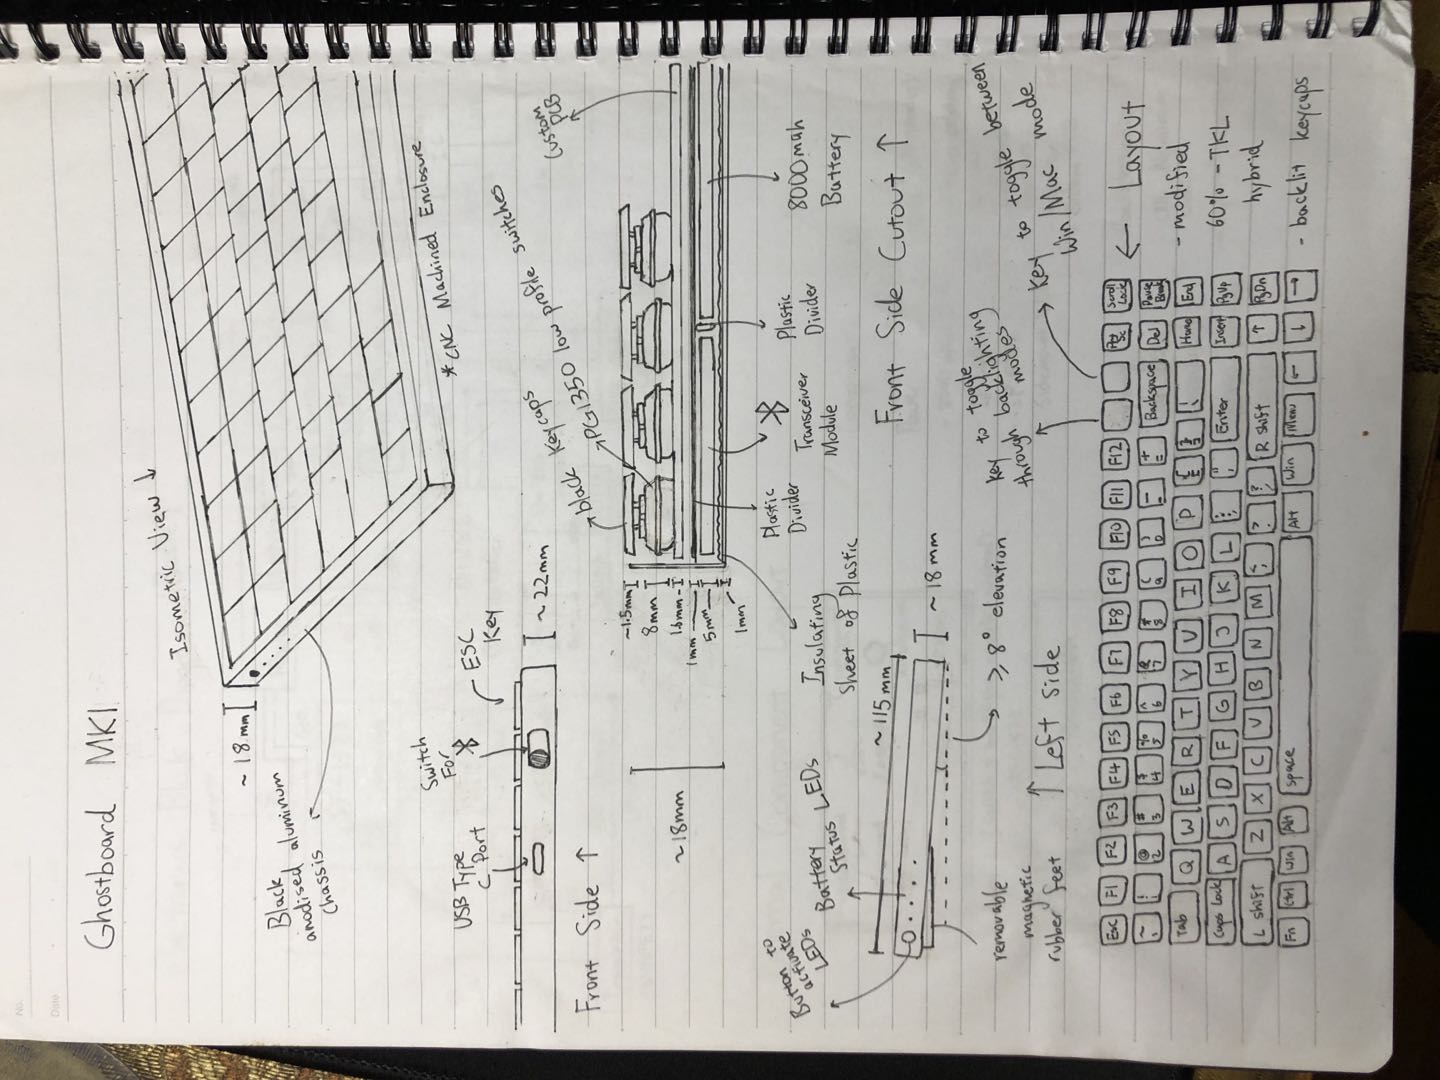 No.
Date
Ghostboard MK1
Isometric View ↓
~18mm
Black
anodised aluminum
chassis
*CNC Machined Enclosure
USB Type
C Port
Switch
For
ESC
Key
~22mm
Front Side ↑
black Keycaps
PG1350 low profile switches
custom
PCB
~1.5mm
8mm
1.6mm
1mm
5mm
1mm
~18mm
Insulating
Sheet of Plastic
Plastic
Divider
Transceiver
Module
Plastic
Divider
8000mah
Battery
Front Side Cutout ↑
Button to
activate
LEDs
Battery
Status
LEDs
~115mm
~18mm
removable
magnetic
rubber feet
≥8° elevation
↑ Left Side
Key to toggle
through backlighting
modes
Key to toggle between
Win/Mac mode
← Layout
- modified
60% - TKL
hybrid
- backlit keycaps
Esc F1 F2 F3 F4 F5 F6 F7 F8 F9 F10 F11 F12 Prt Sc Scroll Lock
~ ` ! 1 @ 2 # 3 $ 4 % 5 ^ 6 & 7 * 8 ( 9 ) 0 _ - + = Backspace Del Pause Break
Tab Q W E R T Y U I O P { [ } ] \ Home End
Caps Lock A S D F G H J K L : ; " ' Enter Insert PgUp
L Shift Z X C V B N M R Shift ↑ PgDn
Fn Ctrl Win Alt Space Alt Win Menu ← ↓ →